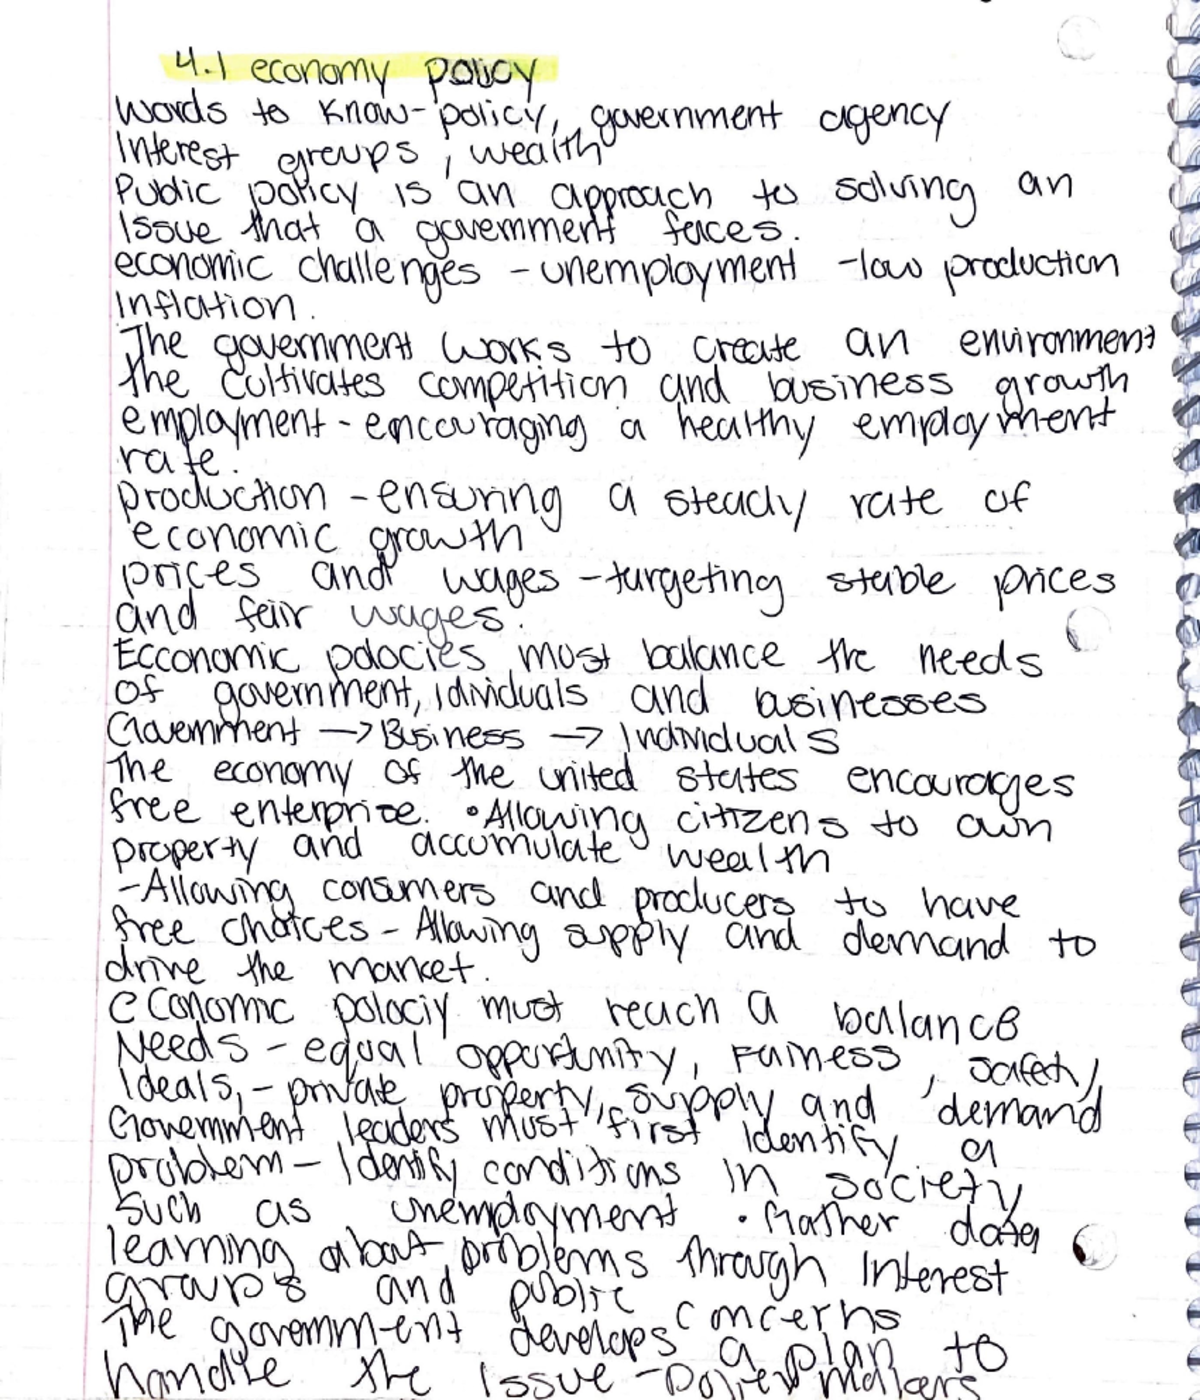 4.1 economy policy
Words to know-policy, government agency
Interest groups, wealth
Public policy is an approach to solving an
Issue that a government faces.
economic challenges -unemployment -low production
Inflation.
The government works to create an environment
the cultivates competition and business growth
employment - encouraging a healthy employment
rate.
production - ensuring a steady rate of
economic growth
prices and wages - targeting stable prices
and fair wages.
Ecconomic polocies must balance the needs
of government, idividuals and businesses
Government → Business → Individuals
The economy of the united states encourages
free enterprise. • Allowing citizens to own
property and accumulate wealth
-Allowing consumers and producers to have
free choices - Allowing supply and demand to
drive the market.
economic polociy must reach a balance
Needs - equal opportunity, Fairness, safety,
Ideals, - private property, supply and demand
Government leaders must first Identify a
problem - Identify conditions in society
such as unemployment • Gather data
learning about problems through Interest
groups and public concerns
The government develops a plan to
handle the Issue - Policy makers